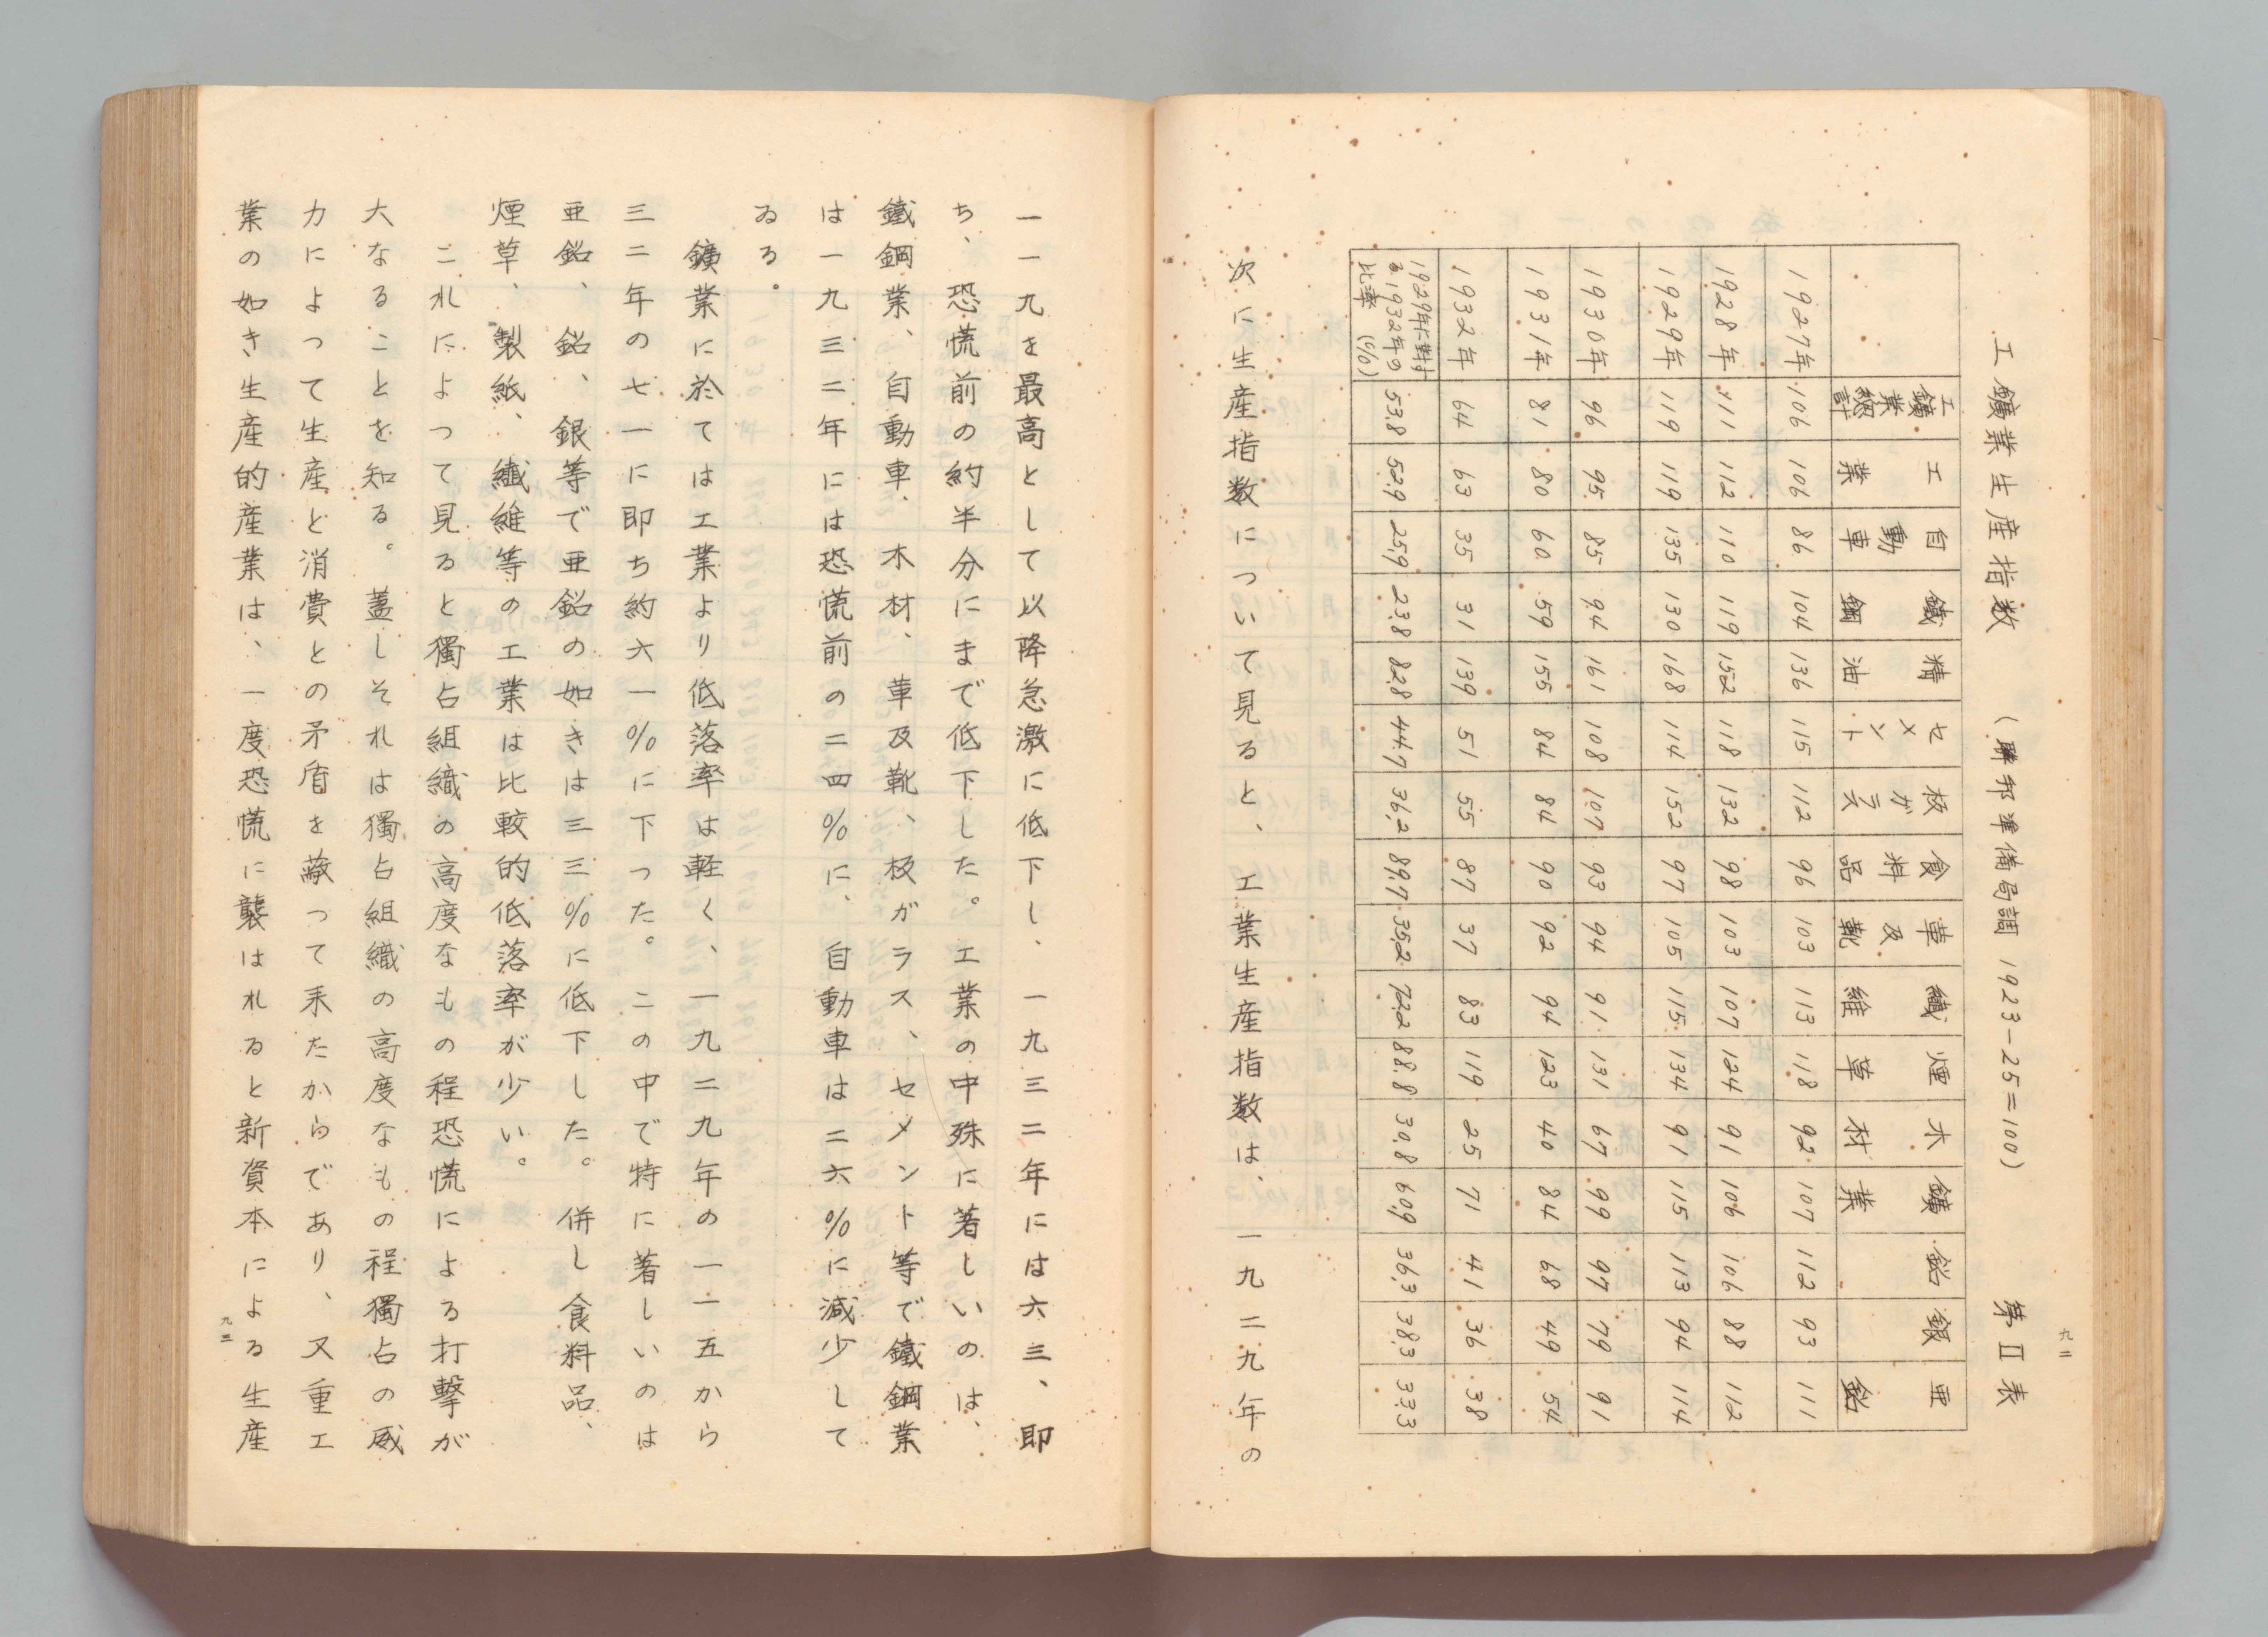 九二
工鑛業生産指数 (聯邦準備局調 1923-25=100) 第Ⅱ表
工鑛業總計 工業 自動車 鐵鋼 精油 セメント 板ガラス 食料品 革及靴 纖維 煙草 木材 鑛業 鉛 銀 亜鉛
1927年 106 106 86 104 136 115 112 96 103 113 118 92 107 112 93 111
1928年 111 112 110 119 152 118 132 98 103 107 124 91 106 106 88 112
1929年 119 119 135 130 168 114 152 97 105 115 134 91 115 113 94 114
1930年 96 95 85 94 161 108 107 93 94 91 131 67 99 97 79 91
1931年 81 80 60 59 155 84 84 90 92 94 123 40 84 68 49 54
1932年 64 63 35 31 139 51 55 87 37 83 119 25 71 41 36 38
1929年に對する1932年の比率 (%) 53.8 52.9 25.9 23.8 82.8 44.7 36.2 89.7 35.2 72.2 88.8 30.8 60.9 36.3 38.3 33.3
次に生産指数について見ると、工業生産指数は、一九二九年の
一一九を最高として以降急激に低下し、一九三二年には六三、即
ち、恐慌前の約半分にまで低下した。工業の中殊に著しいのは、
鐵鋼業、自動車、木材、革及靴、板ガラス、セメント等で鐵鋼業
は一九三二年には恐慌前の二四%に、自動車は二六%に減少して
ゐる。
鑛業に於ては工業より低落率は軽く、一九二九年の一一五から
三二年の七一に即ち約六一%に下った。この中で特に著しいのは
亜鉛、鉛、銀等で亜鉛の如きは三三%に低下した。併し食料品、
煙草、製紙、纖維等の工業は比較的低落率が少い。
これによって見ると獨占組織の高度なもの程恐慌による打撃が
大なることを知る。蓋しそれは獨占組織の高度なもの程獨占の威
力によって生産と消費との矛盾を蔽って来たからであり、又重工
業の如き生産的産業は、一度恐慌に襲はれると新資本による生産
九三